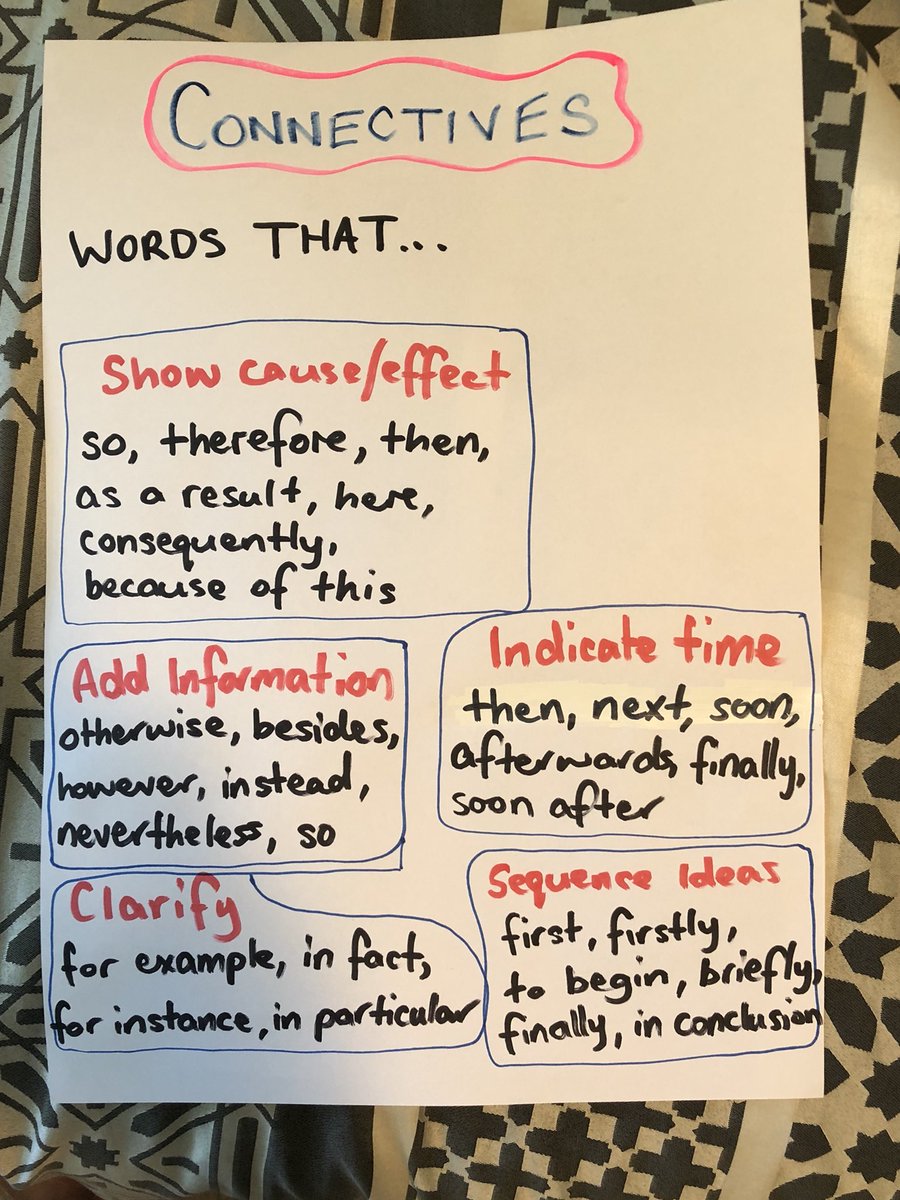 CONNECTIVES
WORDS THAT...
Show cause/effect
so, therefore, then,
as a result, here,
consequently,
because of this
Add Information
otherwise, besides,
however, instead,
nevertheless, so
Indicate time
then, next, soon,
afterwards, finally,
soon after
Clarify
for example, in fact,
for instance, in particular
Sequence Ideas
first, firstly,
to begin, briefly,
finally, in conclusion